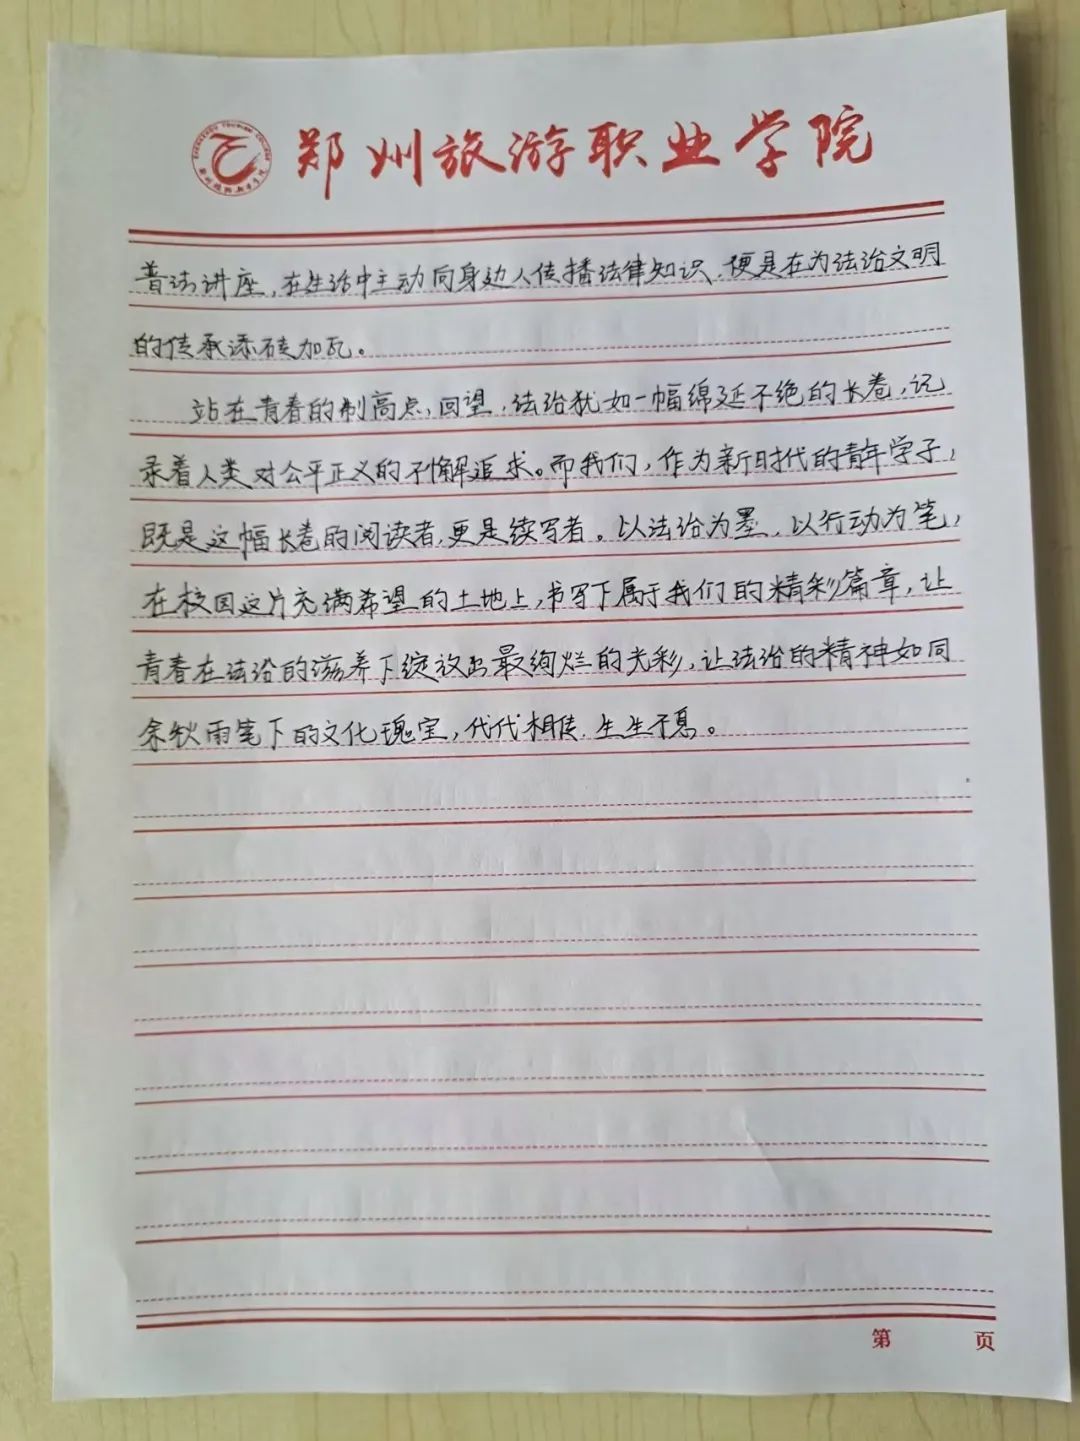 郑州旅游职业学院
普法讲座,在生活中主动向身边人传播法律知识,便是在为法治文明
的传承添砖加瓦。
站在青春的制高点,回望,法治犹如一幅绵延不绝的长卷,记
录着人类对公平正义的不懈追求。而我们,作为新时代的青年学子,
既是这幅长卷的阅读者,更是续写者。以法治为墨,以行动为笔,
在校园这片充满希望的土地上,书写下属于我们的精彩篇章,让
青春在法治的滋养下绽放出最绚烂的光彩,让法治的精神如同
余秋雨笔下的文化瑰宝,代代相传,生生不息。
第 页